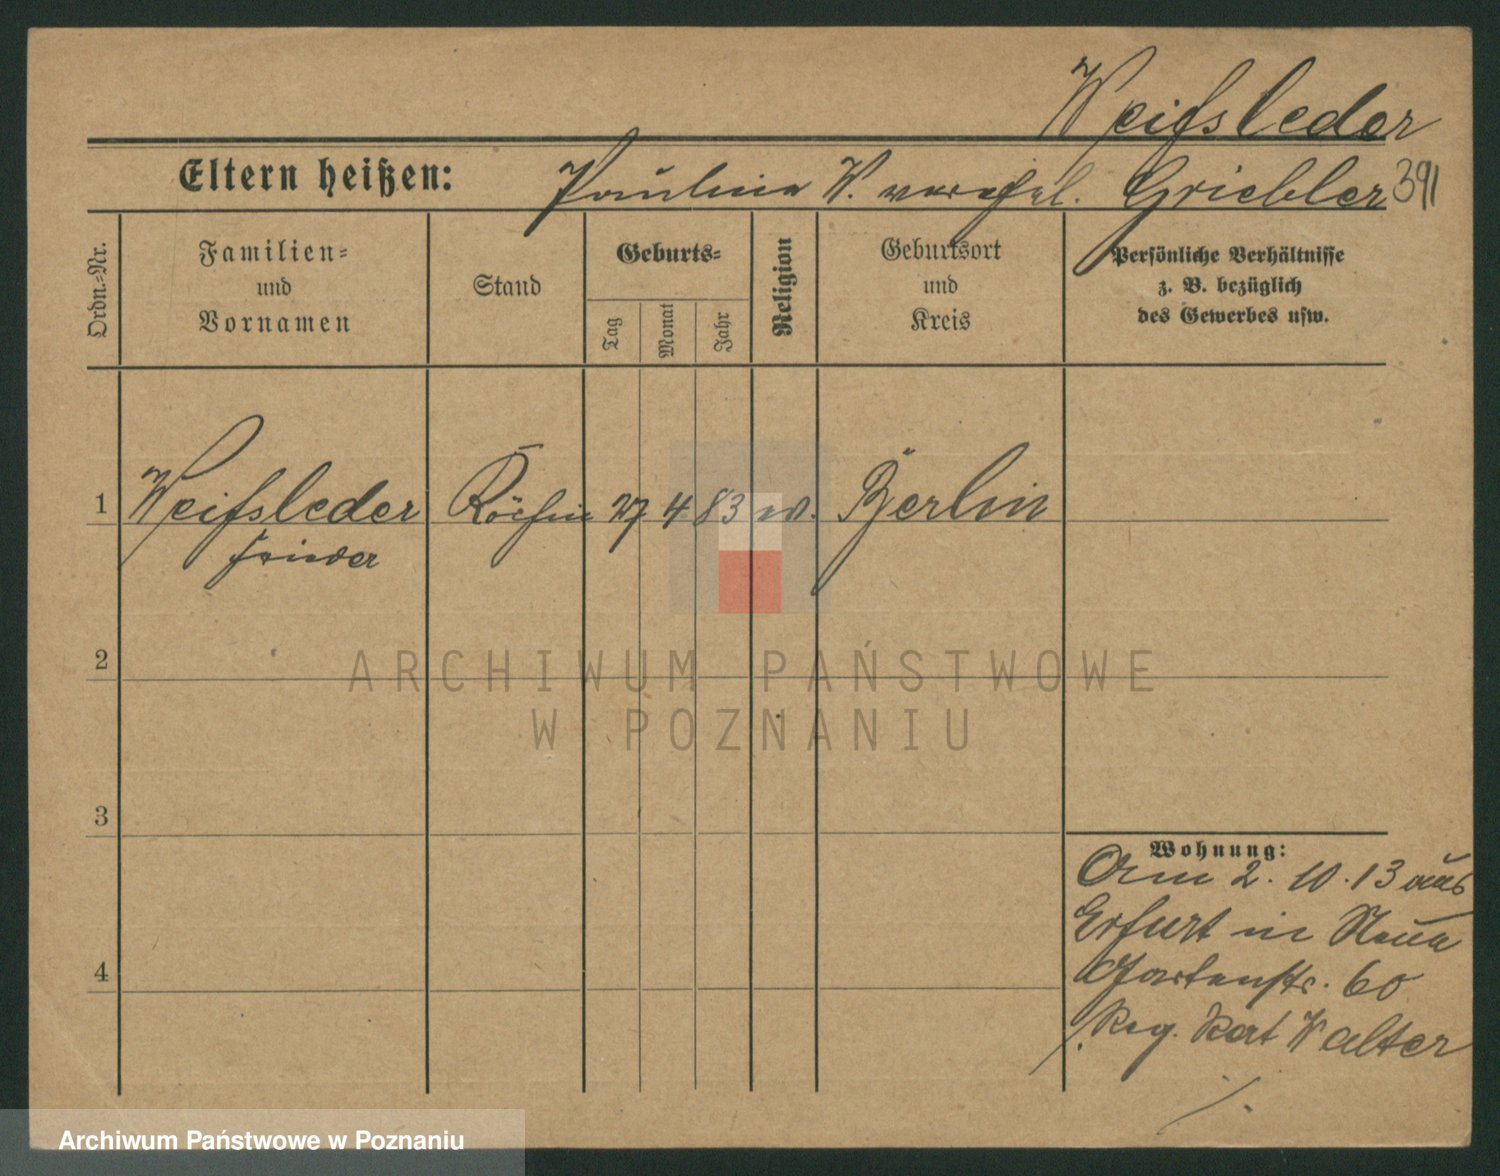 Weißleder
Eltern heißen: Pauline W. verehel. Griebler 391
Ordn.-Nr.
Familien-
und
Vornamen
Stand
Geburts-
Tag
Monat
Jahr
Religion
Geburtsort
und
Kreis
Persönliche Verhältnisse
z. B. bezüglich
des Gewerbes usw.
1 Weißleder Köchin 27 4 83 ev. Berlin
2
3
4
Wohnung:
Am 2. 10. 13 aus
Erfurt in Neue
Gartenstr. 60
Reg. Rat Walter
ARCHIWUM PAŃSTWOWE
W POZNANIU
Archiwum Państwowe w Poznaniu